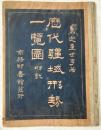 歷代疆域形勢
一覽圖附說
商務印書館發行